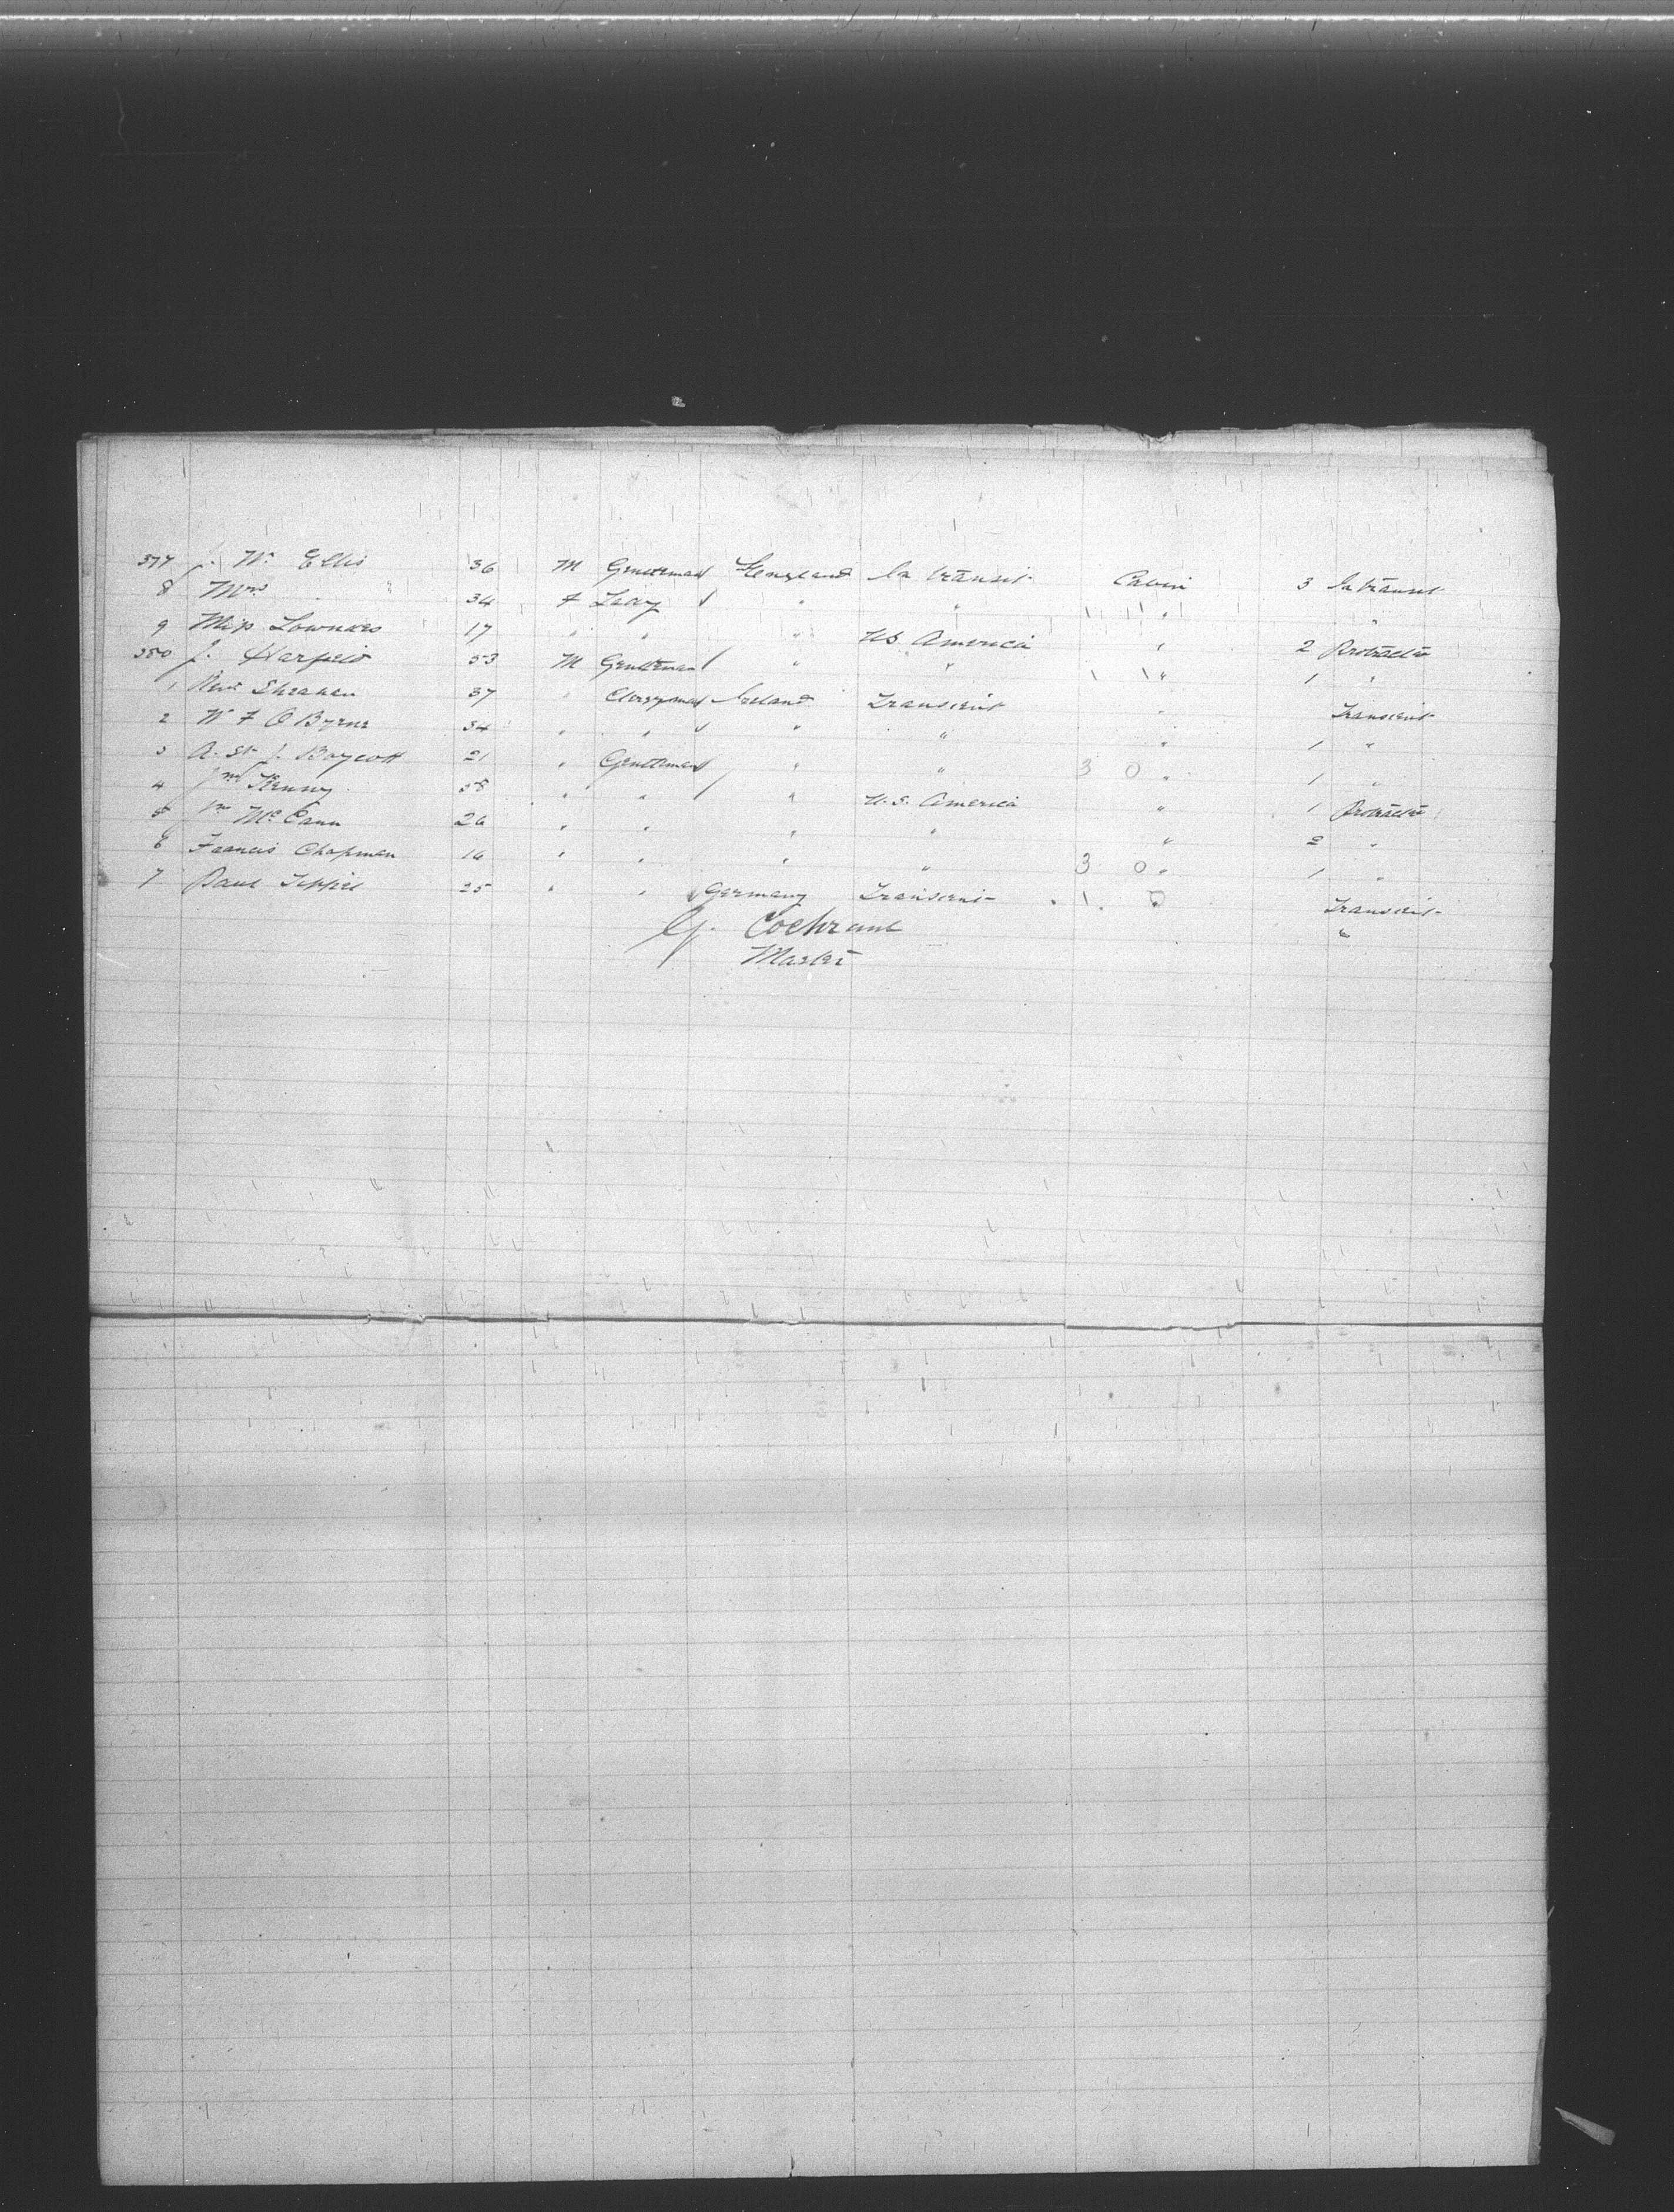 377 J. W. Ellis 36 M Gentleman England In transit Cabin 3 In transit
8 Mrs " 34 F Lady " " " "
9 Miss Lowndes 17 " " " US America " 2 Protracted
380 J. Harfield 53 M Gentleman " " " 1 "
1 Revd Sheahan 37 " Clergyman Ireland Transient " Transient
2 W F O Byrne 34 " " " " " 1 "
3 A. St J. Boycott 21 " Gentleman " " 3 0 " 1 "
4 Jno Kenny 58 " " " U.S. America " 1 Protracted
5 Jno McCann 26 " " " " " 2 "
6 Francis Chapman 16 " " " " 3 0 " 1 "
7 Paul 25 " " Germany Transient 1. 0 Transient
"
G. Cochrane
Master